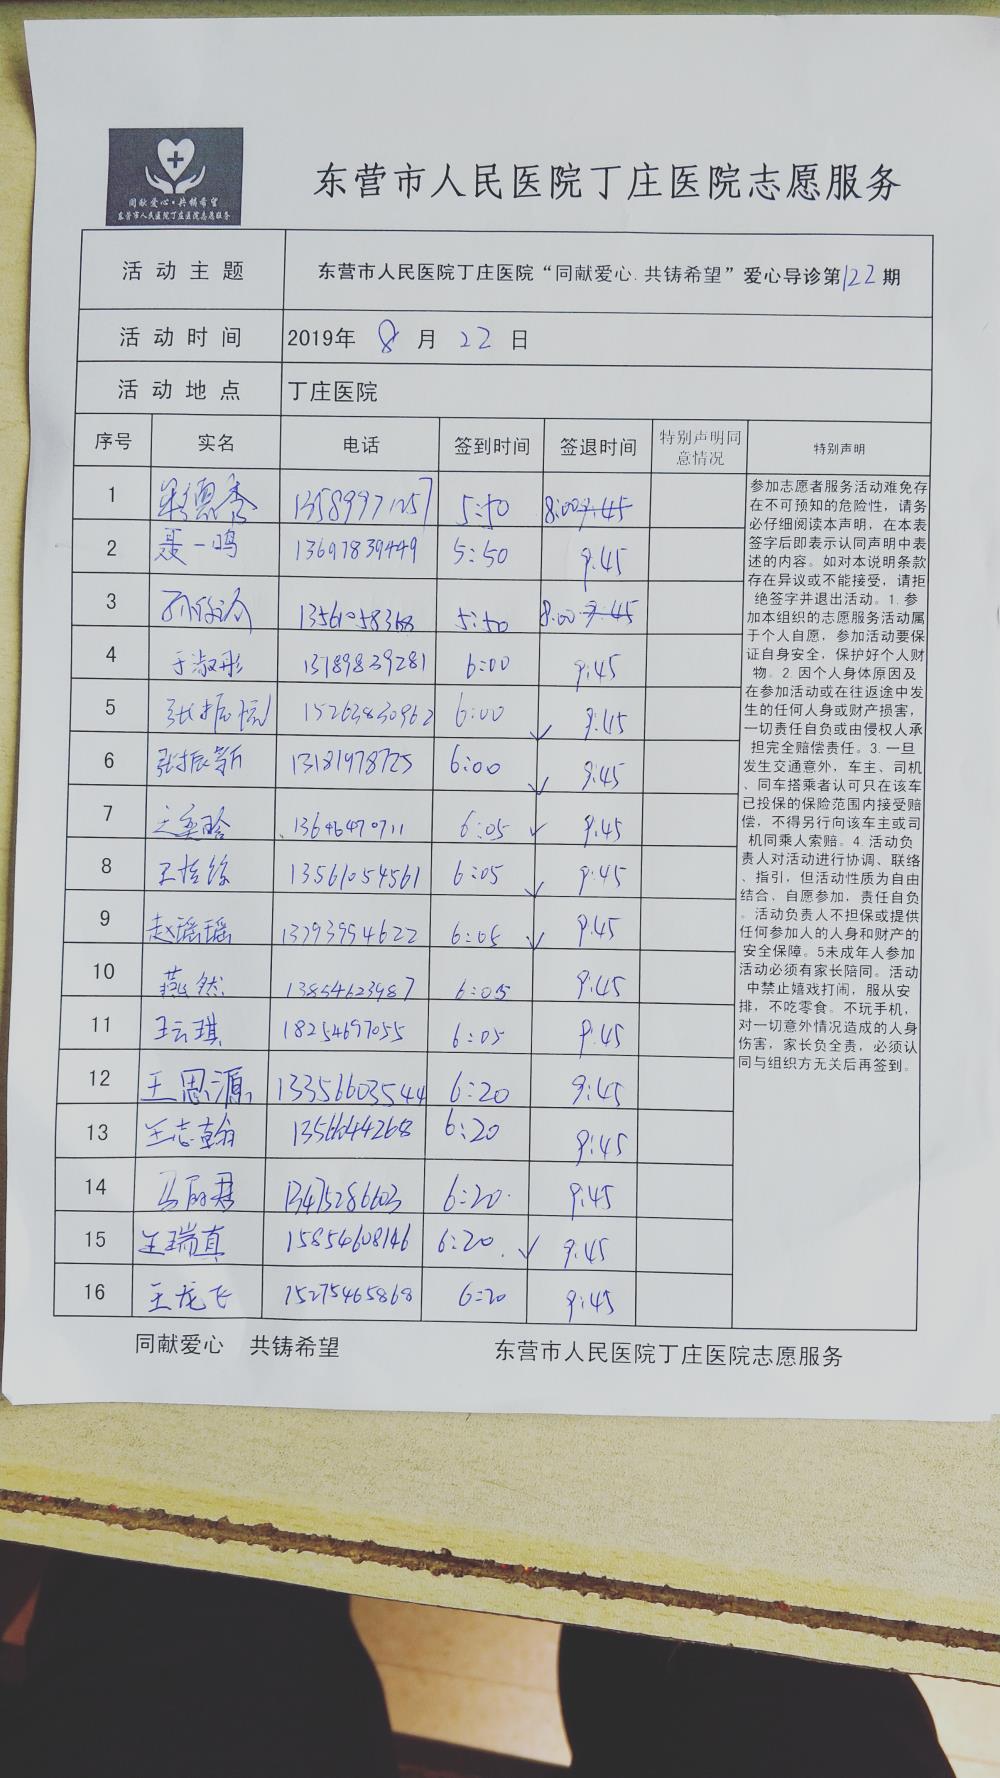 同献爱心·共铸希望
东营市人民医院丁庄医院志愿服务
东营市人民医院丁庄医院志愿服务
活动主题 东营市人民医院丁庄医院“同献爱心.共铸希望”爱心导诊第122期
活动时间 2019年 8 月 22 日
活动地点 丁庄医院
序号 实名 电话 签到时间 签退时间 特别声明同意情况 特别声明
1 德秀 5:50 8:00 9:45
2 聂一鸣 13697839449 5:50 9:45
3 5:50 8:00 9:45
4 于淑彤 13789839281 6:00 9:45
5 15263830962 6:00 ✓ 9:45
6 张振新 13181978725 6:00 ✓ 9:45
7 13646470711 6:05 ✓ 9:45
8 13561054561 6:05 ✓ 9:45
9 赵瑶瑶 13793954622 6:05 ✓ 9:45
10 燕然 13854623987 6:05 9:45
11 王云琪 18254697055 6:05 9:45
12 王思源 13356603544 6:20 9:45
13 王志翰 1356644268 6:20 9:45
14 马丽君 13475286603 6:20 9:45
15 王瑞真 15854608146 6:20 ✓ 9:45
16 王龙飞 15275465868 6:20 9:45
参加志愿者服务活动难免存
在不可预知的危险性，请务
必仔细阅读本声明，在本表
签字后即表示认同声明中表
述的内容。如对本说明条款
存在异议或不能接受，请拒
绝签字并退出活动。1.参
加本组织的志愿服务活动属
于个人自愿，参加活动要保
证自身安全，保护好个人财
物。2.因个人身体原因及
在参加活动或在往返途中发
生的任何人身或财产损害，
一切责任自负或由侵权人承
担完全赔偿责任。3.一旦
发生交通意外，车主、司机
、同车搭乘者认可只在该车
已投保的保险范围内接受赔
偿，不得另行向该车主或司
机同乘人索赔。4.活动负
责人对活动进行协调、联络
、指引，但活动性质为自由
结合、自愿参加，责任自负
。活动负责人不担保或提供
任何参加人的人身和财产的
安全保障。5未成年人参加
活动必须有家长陪同。活动
中禁止嬉戏打闹，服从安
排，不吃零食。不玩手机，
对一切意外情况造成的人身
伤害，家长负全责，必须认
同与组织方无关后再签到。
同献爱心 共铸希望 东营市人民医院丁庄医院志愿服务